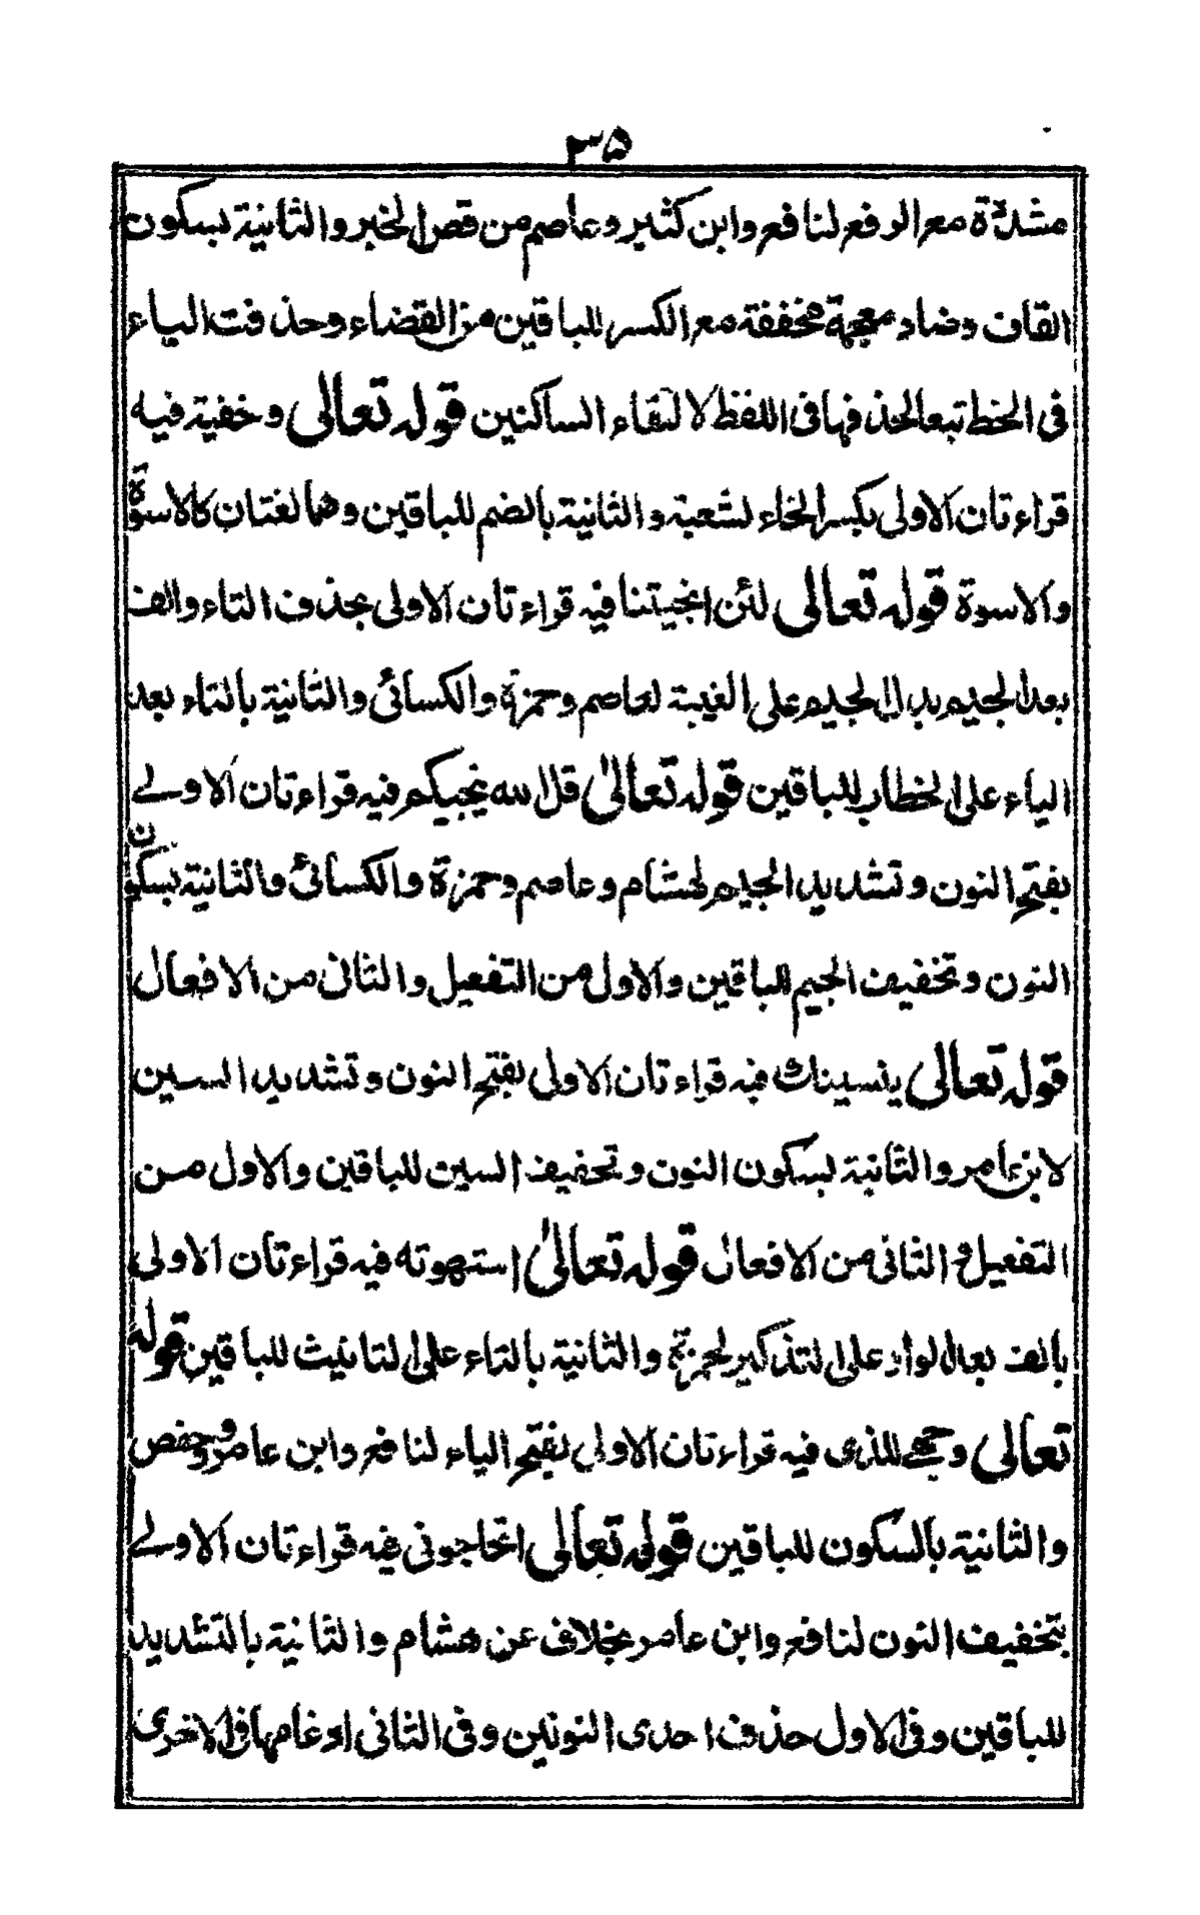 ۳۵
مشددة مع الرفع لنافع وابن كثير وعاصم من قص الخبر والثانية بسكون
القاف وضاد معجمة مخففة مع الكسر للباقين من القضاء وحذفت الياء
فى الخط تبعا لحذفها فى اللفظ لالتقاء الساكنين قوله تعالى وخفية فيه
قراءتان الاولى بكسر الخاء لشعبة والثانية بالضم للباقين وهما لغتان كالاسوة
والاسوة قوله تعالى لئن انجيتنا فيه قراءتان الاولى بحذف التاء والف
بعد الجيم بدل الجيم على الغيبة لعاصم وحمزة والكسائى والثانية بالتاء بعد
الياء على الخطاب للباقين قوله تعالىٰ قل الله ينجيكم فيه قراءتان الاولے
بفتح النون وتشديد الجيم لهشام وعاصم وحمزة والكسائى والثانية بسكون
النون وتخفيف الجيم للباقين والاول من التفعيل والثانى من الافعال
قوله تعالى ينسينك فيه قراءتان الاولى بفتح النون وتشديد السين
لابن عامر والثانية بسكون النون وتخفيف السين للباقين والاول من
التفعيل و الثانى من الافعال قوله تعالىٰ استهوته فيه قراءتان الاولى
بالف بعد الواو على التذكير لحمزة والثانية بالتاء على التانيث للباقين قوله
تعالى وجهى للذى فيه قراءتان الاولى بفتح الياء لنافع وابن عامر وحفص
والثانية بالسكون للباقين قوله تعالى اتحاجونى فيه قراءتان الاولے
بتخفيف النون لنافع وابن عامر بخلاف عن هشام والثانية بالتشديد
للباقين وفى الاول حذف احدى النونين وفى الثانى ادغامها فى الاخرى